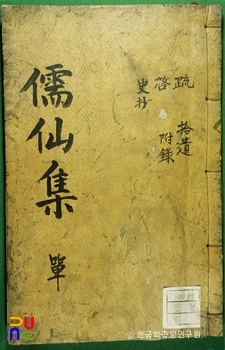 疏
啓
史抄
拾遺
附錄
儒仙集
單
© 한국학중앙연구원